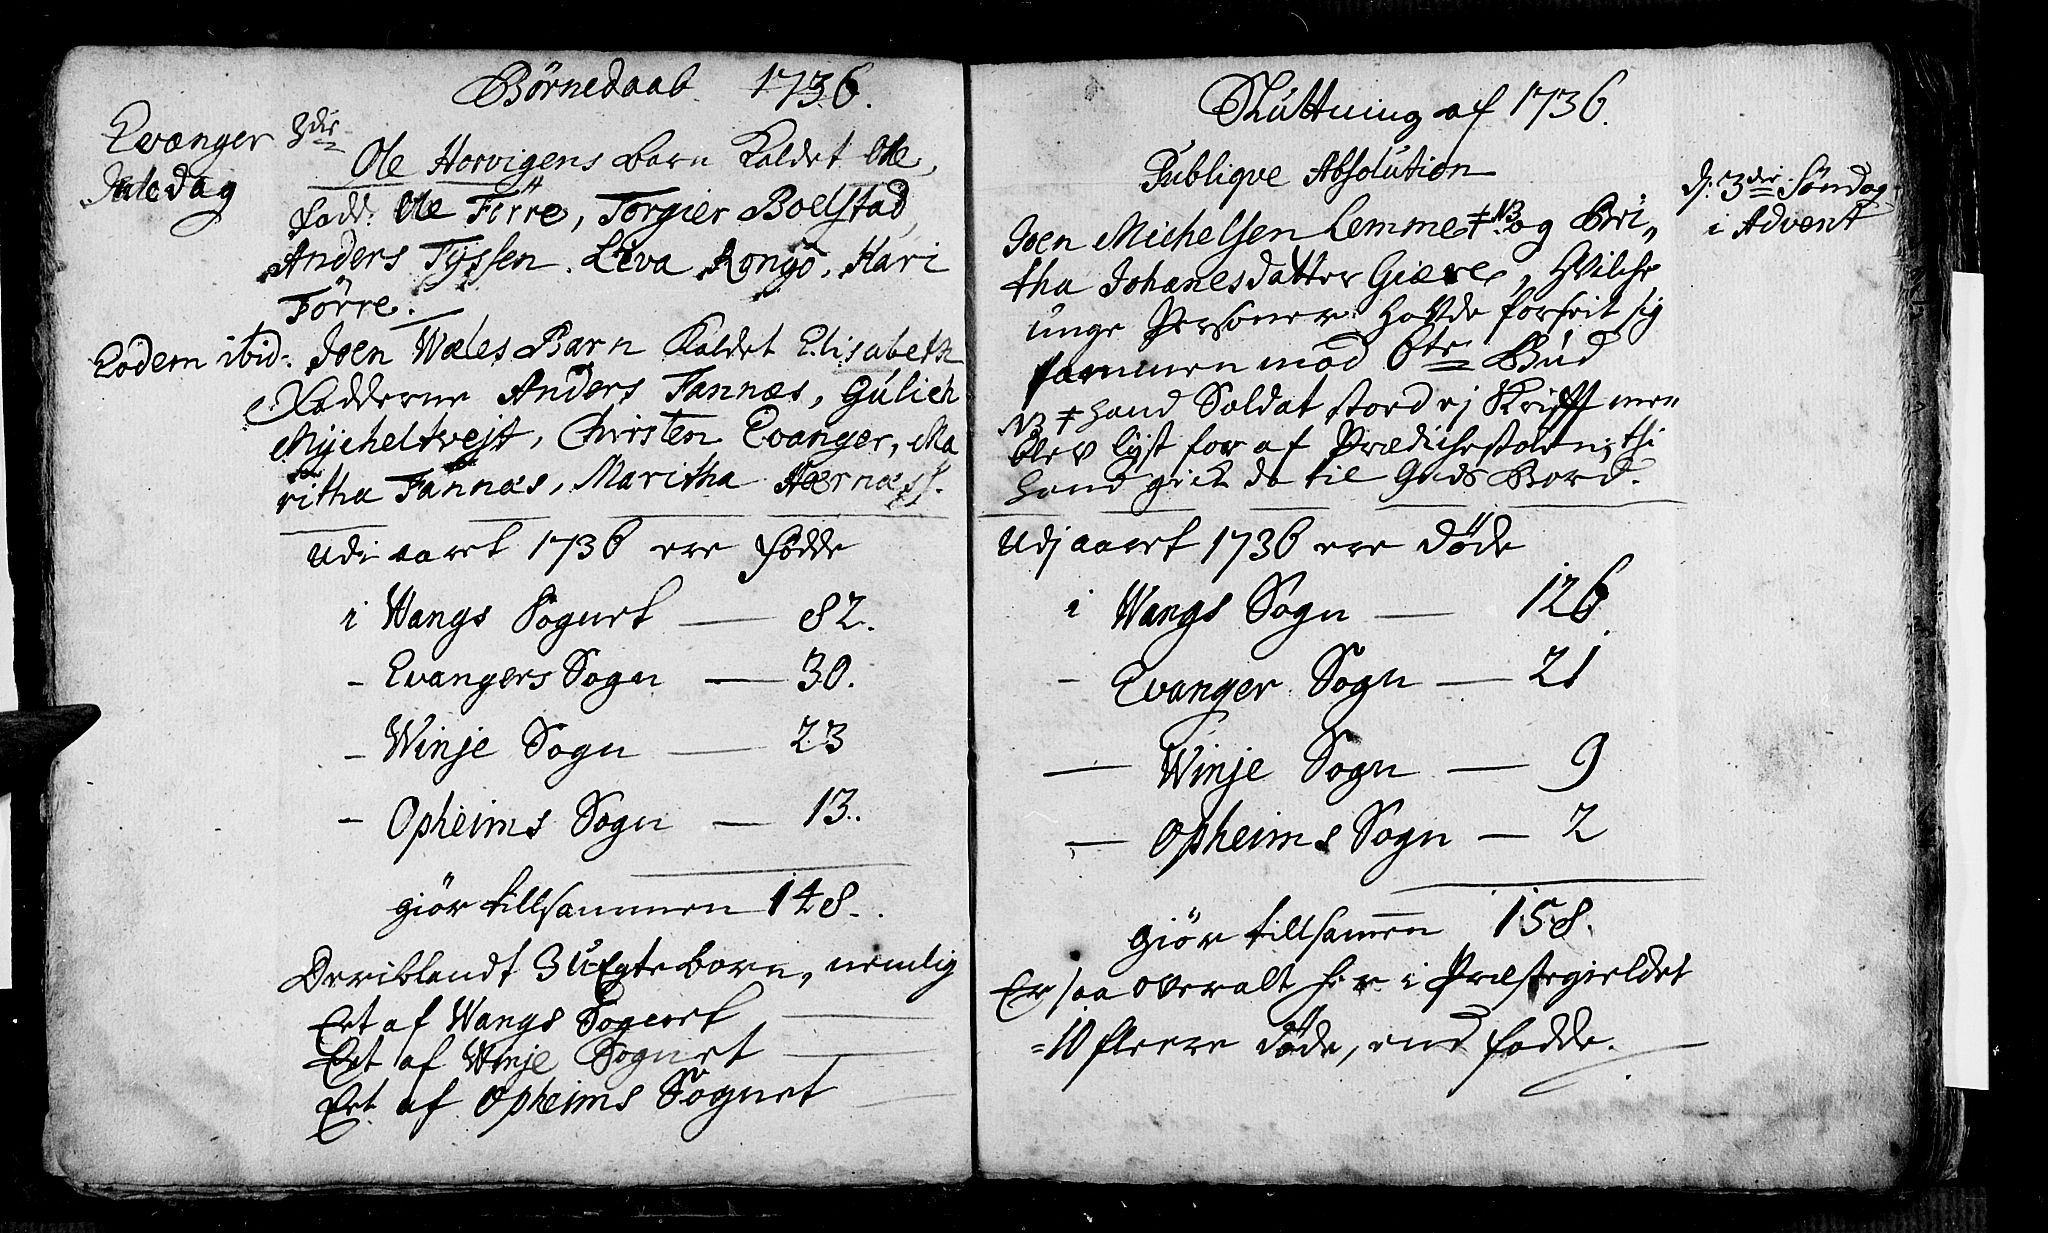 Börnedaab 1736.
Evanger 3die
Juledag
Ole Horvigens barn Kaldet Ole,
fadd: Ole Förre, Torgier Boelstad,
Anders Tyssen. Liva Rongo, Kari
Förre.
Eodem ibid: Joen Wæles Barn Kaldet Elisabeth
Fadderne Anders Fannæs, Gúlich
Mycheltvejt, Christen Evanger, Ma
ritha Fannæs, Maritha Hernæss.
Udi aaret 1736 ere födde
i Wangs Sognet — 82.
- Evangers Sogn — 30.
- Winje Sogn — 23
- Opheims Sogn — 13.
giör tillsammen 148.
Deriblandt 3 uEgte born, nemlig
Eet af Wangs Sognet
Eet af Winje Sognet
Eet af Opheims Sognet
Slúttning af 1736.
Públiqve Absolútion
D: 3die Söndag
i Advent
Joen Michelsen Lemme ‡ NB og Bri„
tha Johanesdatter Giære, hvilche
unge Personer hafde forseit sig
sammen mod 6te Búd
NB ‡ hand Soldat stod ej Skrifft men
blev lijst for af Prædichestolen; thi
hand gick da til Guds Bord.
Udj aaret 1736 ere döde
i Wangs Sogn — 126
- Evanger Sogn — 21
— Winje Sogn — 9
— Opheims Sogn — 2
giör tillsamen 158.
Er saa overalt her i Præstegieldet
=10 fleere döde, end fødde.